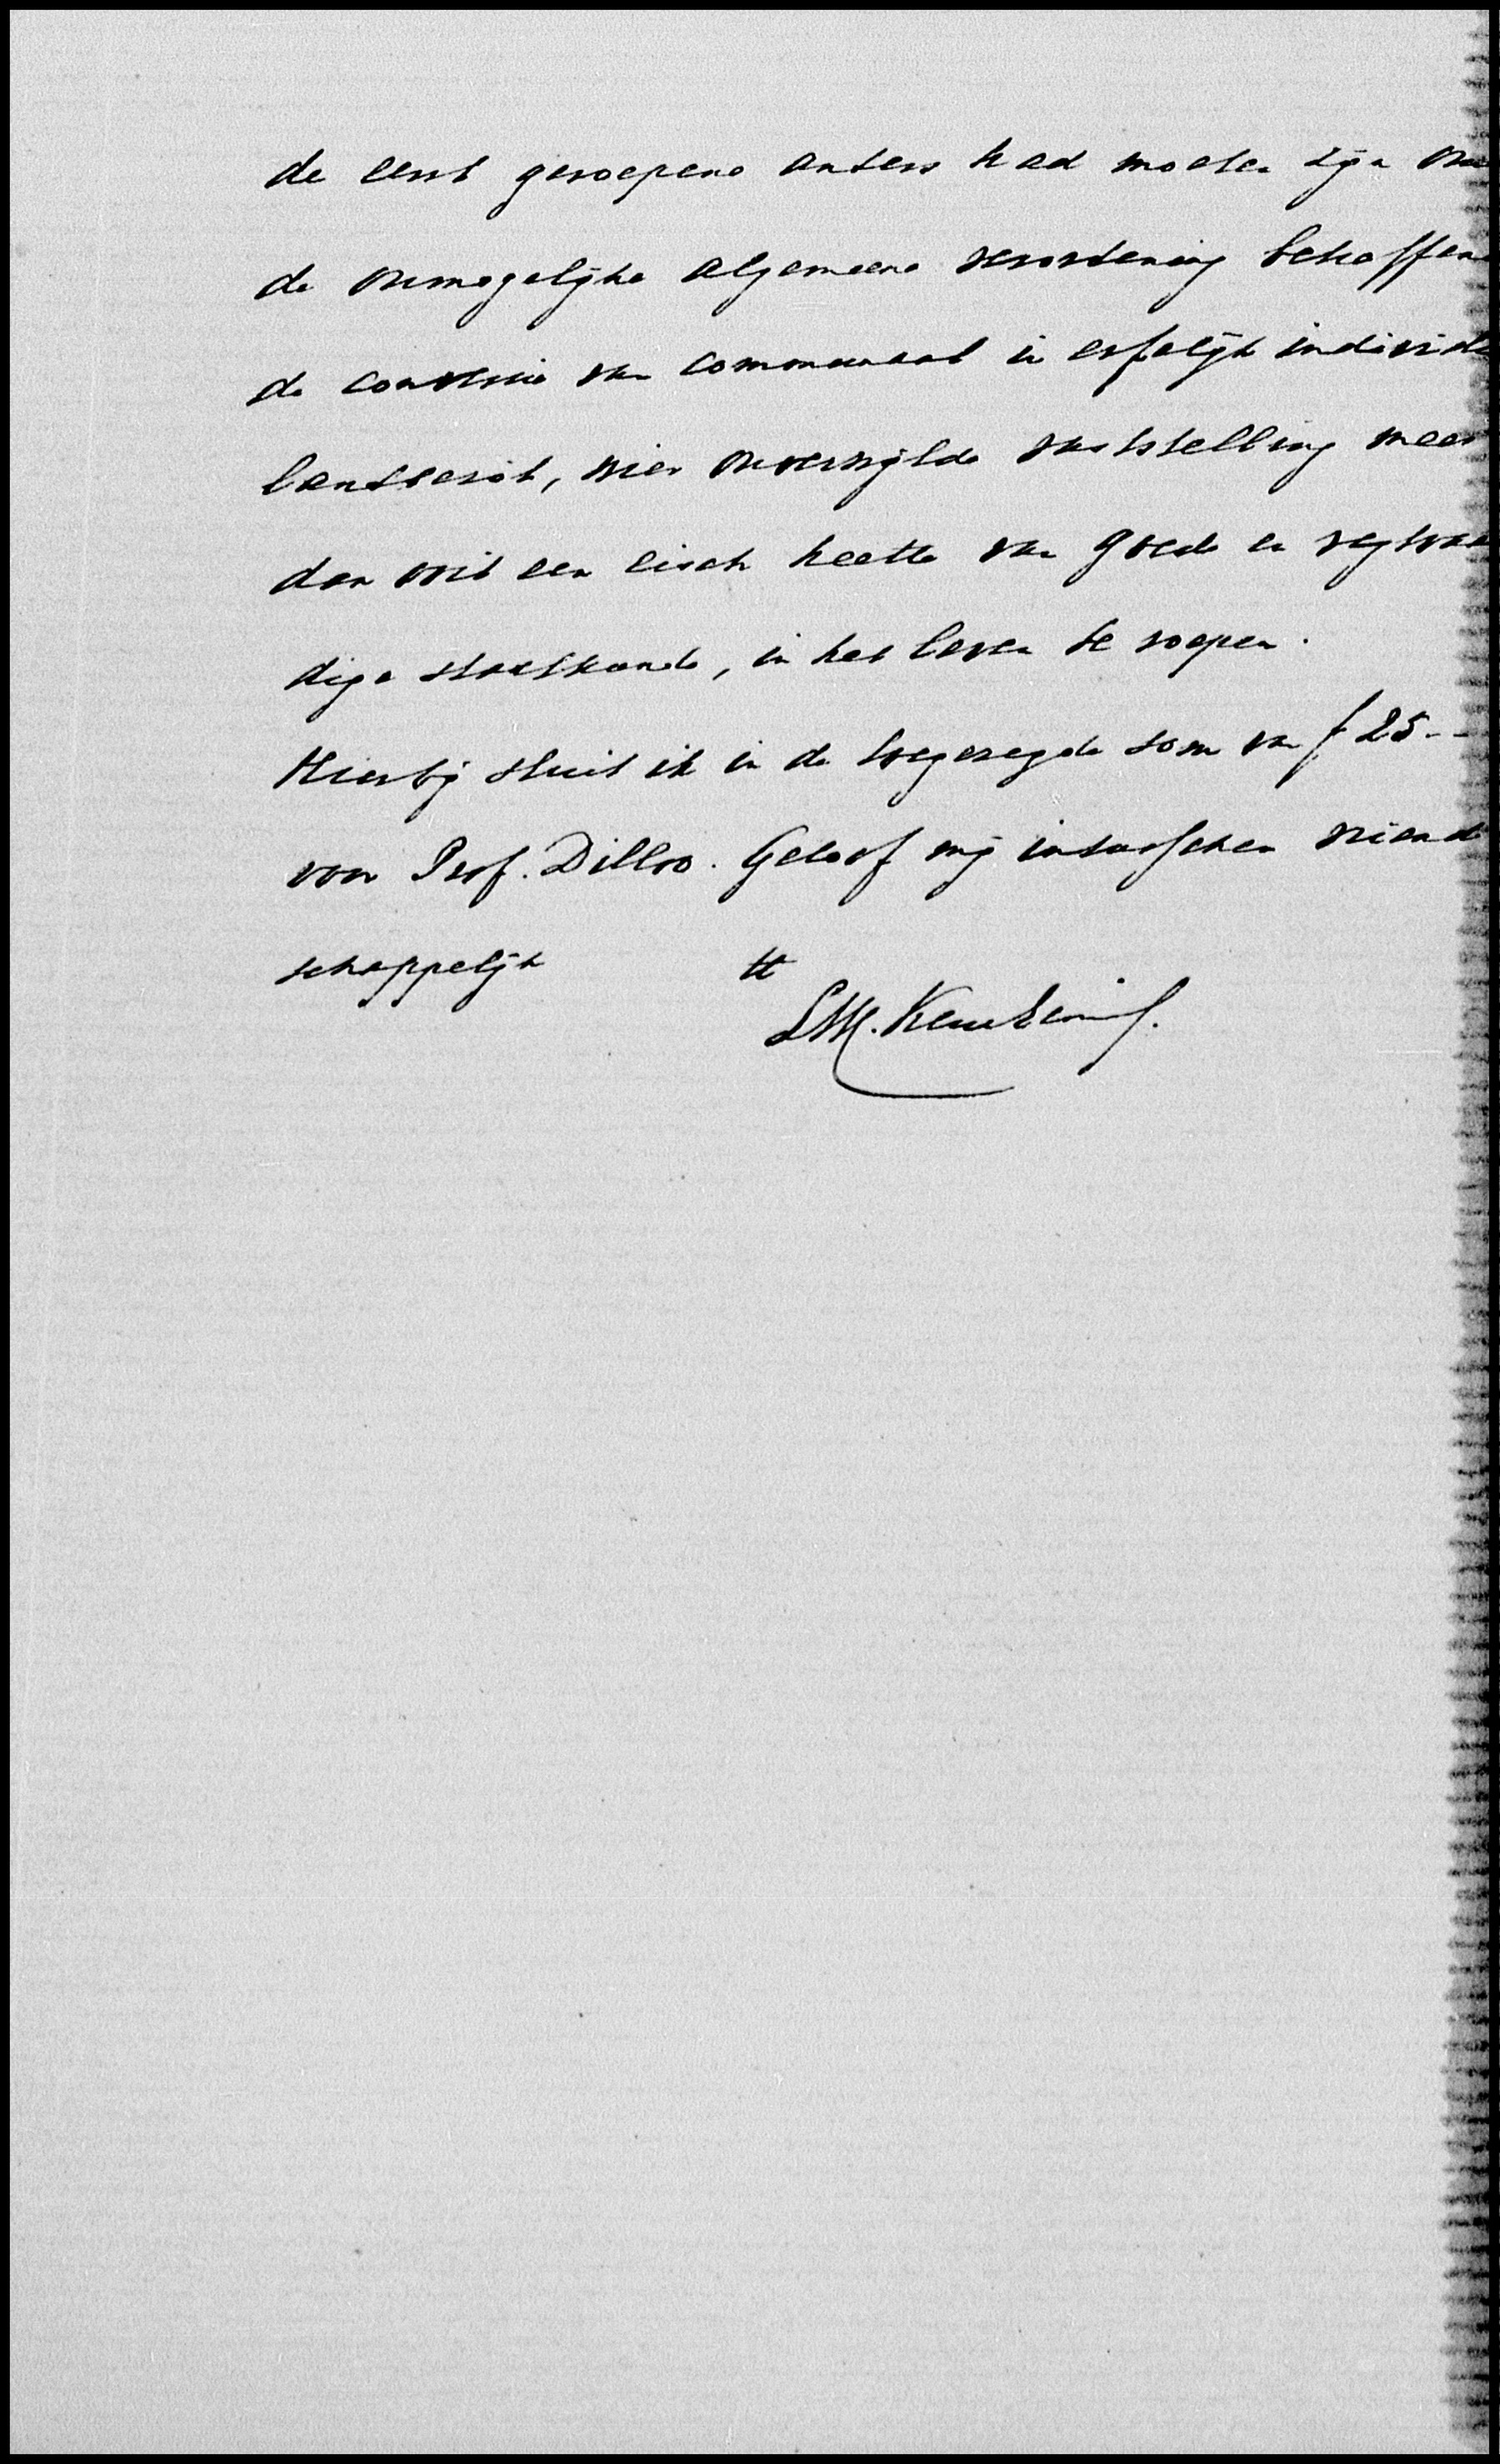 de eerst geroepene anders had moeten zijn om
de onmogelijke algemeene verordening betreffen
de conversie van communaal in erfelijk individu
landbezit, wier onverwijlde vaststelling meer
dan ooit een eisch heette van goede en regtvaar
dige staatkunde, in het leven te roepen.
Hierbij sluit ik in de toegezegde som van f 25.-
voor Prof. Dillo. Geloof mij intusschen vriend
schappelijk tt